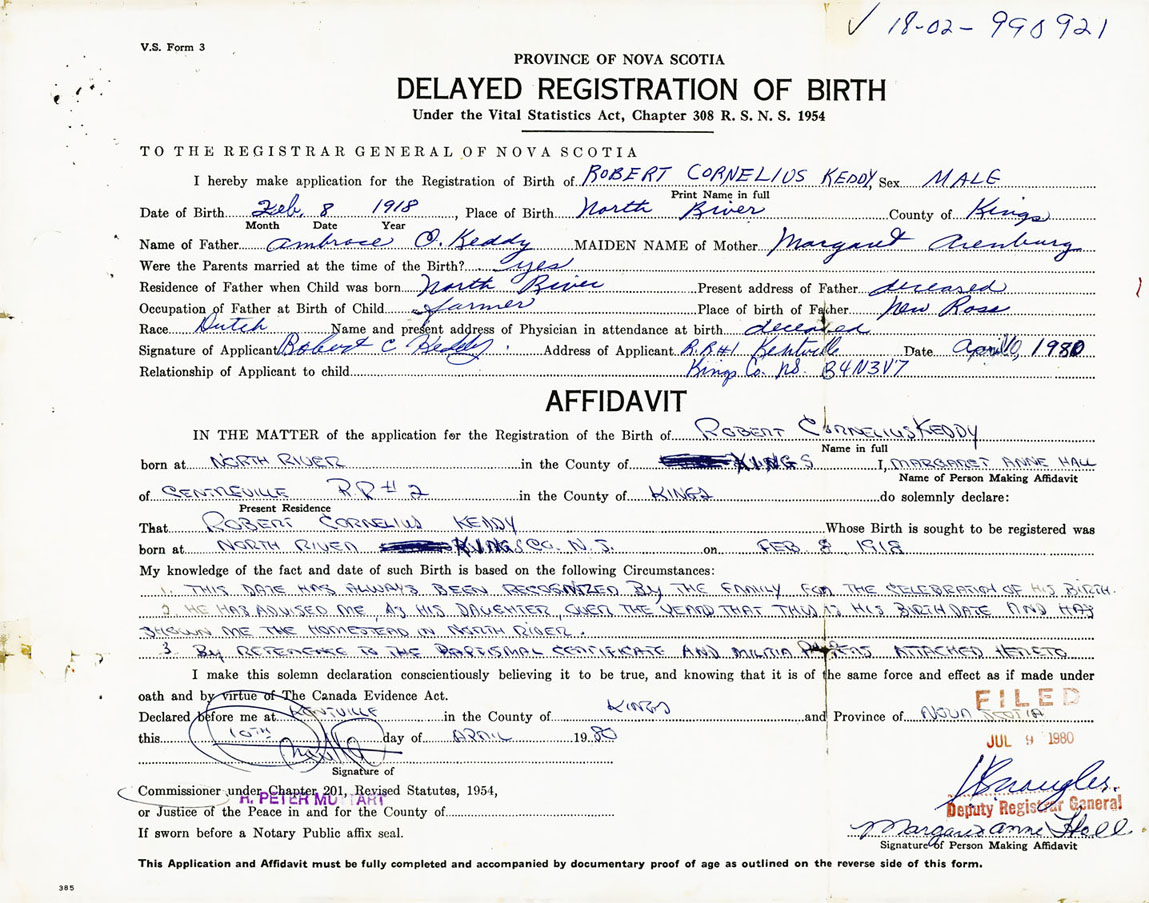 ✓ 18-02-990921
V.S. Form 3
PROVINCE OF NOVA SCOTIA
DELAYED REGISTRATION OF BIRTH
Under the Vital Statistics Act, Chapter 308 R. S. N. S. 1954
TO THE REGISTRAR GENERAL OF NOVA SCOTIA
I hereby make application for the Registration of Birth of ROBERT CORNELIUS KEDDY, Sex MALE
Print Name in full
Date of Birth Feb. 8 1918, Place of Birth North River County of Kings
Month Date Year
Name of Father Ambrose O. Keddy MAIDEN NAME of Mother Margaret Arenburg
Were the Parents married at the time of the Birth? yes
Residence of Father when Child was born North River Present address of Father deceased
Occupation of Father at Birth of Child farmer Place of birth of Father New Ross
Race Dutch Name and present address of Physician in attendance at birth deceased
Signature of Applicant Robert C Keddy. Address of Applicant R.R#1 Kentville Date April 10, 1980
Relationship of Applicant to child Kings Co. NS. B4N3V7
AFFIDAVIT
IN THE MATTER of the application for the Registration of the Birth of ROBERT CORNELIUS KEDDY
Name in full
born at NORTH RIVER in the County of KINGS I, MARGARET ANNE HALL
Name of Person Making Affidavit
of CENTREVILLE RR#2 in the County of KINGS do solemnly declare:
Present Residence
That ROBERT CORNELIUS KEDDY Whose Birth is sought to be registered was
born at NORTH RIVER KINGS CO. N.S. on FEB 8 1918
My knowledge of the fact and date of such Birth is based on the following Circumstances:
1. THIS DATE HAS ALWAYS BEEN RECOGNIZED BY THE FAMILY FOR THE CELEBRATION OF HIS BIRTH.
2 HE HAS ADVISED ME, AS HIS DAUGHTER, OVER THE YEARS THAT THIS IS HIS BIRTH DATE AND HAS
SHOWN ME THE HOMESTEAD IN NORTH RIVER.
3. BY REFERENCE TO THE BAPTISMAL CERTIFICATE AND MILITIA PAPERS ATTACHED HERETO
I make this solemn declaration conscientiously believing it to be true, and knowing that it is of the same force and effect as if made under
oath and by virtue of The Canada Evidence Act.
FILED
Declared before me at KENTVILLE in the County of KINGS and Province of NOVA SCOTIA
this 10TH day of APRIL 1980
JUL 9 1980
Signature of
Commissioner under Chapter 201, Revised Statutes, 1954,
H. PETER MUTTART
Deputy Registrar General
or Justice of the Peace in and for the County of
Margaret Anne Hall
If sworn before a Notary Public affix seal.
Signature of Person Making Affidavit
This Application and Affidavit must be fully completed and accompanied by documentary proof of age as outlined on the reverse side of this form.
385